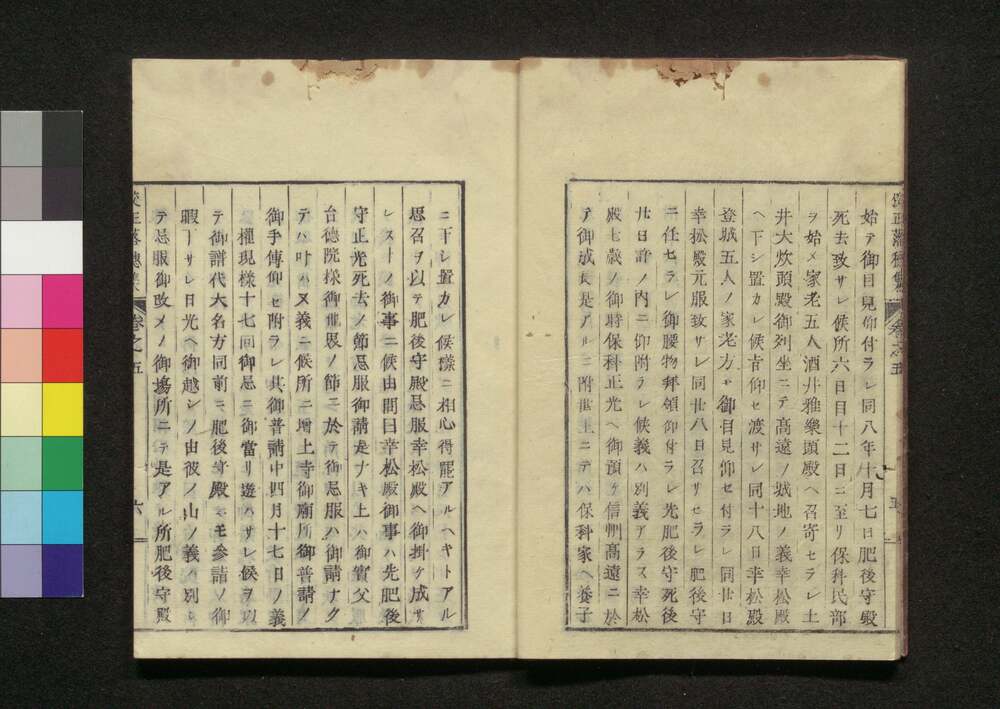 始テ御目見仰付ラレ同八年十月七日肥後守殿
死去致サレ候所六日目十二日ニ至リ保科民部
ヲ始メ家老五人酒井雅樂頭殿ヘ召寄セラレ土
井大炊頭殿御列坐ニテ高遠ノ城地ノ義幸松殿
ヘ下シ置カレ候旨仰セ渡サレ同十八日幸松殿
登城五人ノ家老方モ御目見仰セ付ラレ同廿日
幸松殿元服致サレ同廿八日召サセラレ肥後守
ニ任セラレ御腰物拜領仰付ラレ先肥後守死後
廿日許ノ内ニ仰附ラレ候義ハ別義アラス幸松
殿七歳ノ御時保科正光ヘ御預ケ信州高遠ニ於
テ御成長是アルニ附世上ニテハ保科家ヘ養子
五
ニ下シ置カレ候樣ニ相心得罷アルヘキトアル
思召ヲ以テ肥後守殿忌服幸松殿ヘ御掛ケ成サ
レストノ御事ニ候由間曰幸松殿御事ハ先肥後
守正光死去ノ節忌服御請是ナキ上ハ御實父
台德院樣御他界ノ節ニ於テ御忌服ハ御請ナク
テハ叶ハヌ義ニ候所ニ增上寺御廟所御普請ノ
御手傳仰セ附ラレ其御普請中四月十七日ノ義
權現樣十七囘御忌ニ御當リ遊ハサレ候ヲ以
テ御譜代大名方同前ニ肥後守殿ニモ參詣ノ御
暇下サレ日光ヘ御越シノ由彼ノ山ノ義ハ別シ
テ忌服御改メノ御塲所ニテ是アル所肥後守殿
卷之五
六